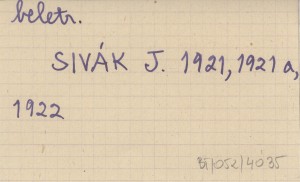 beletr.
SIVÁK J. 1921, 1921 a,
1922
BI/052/4035